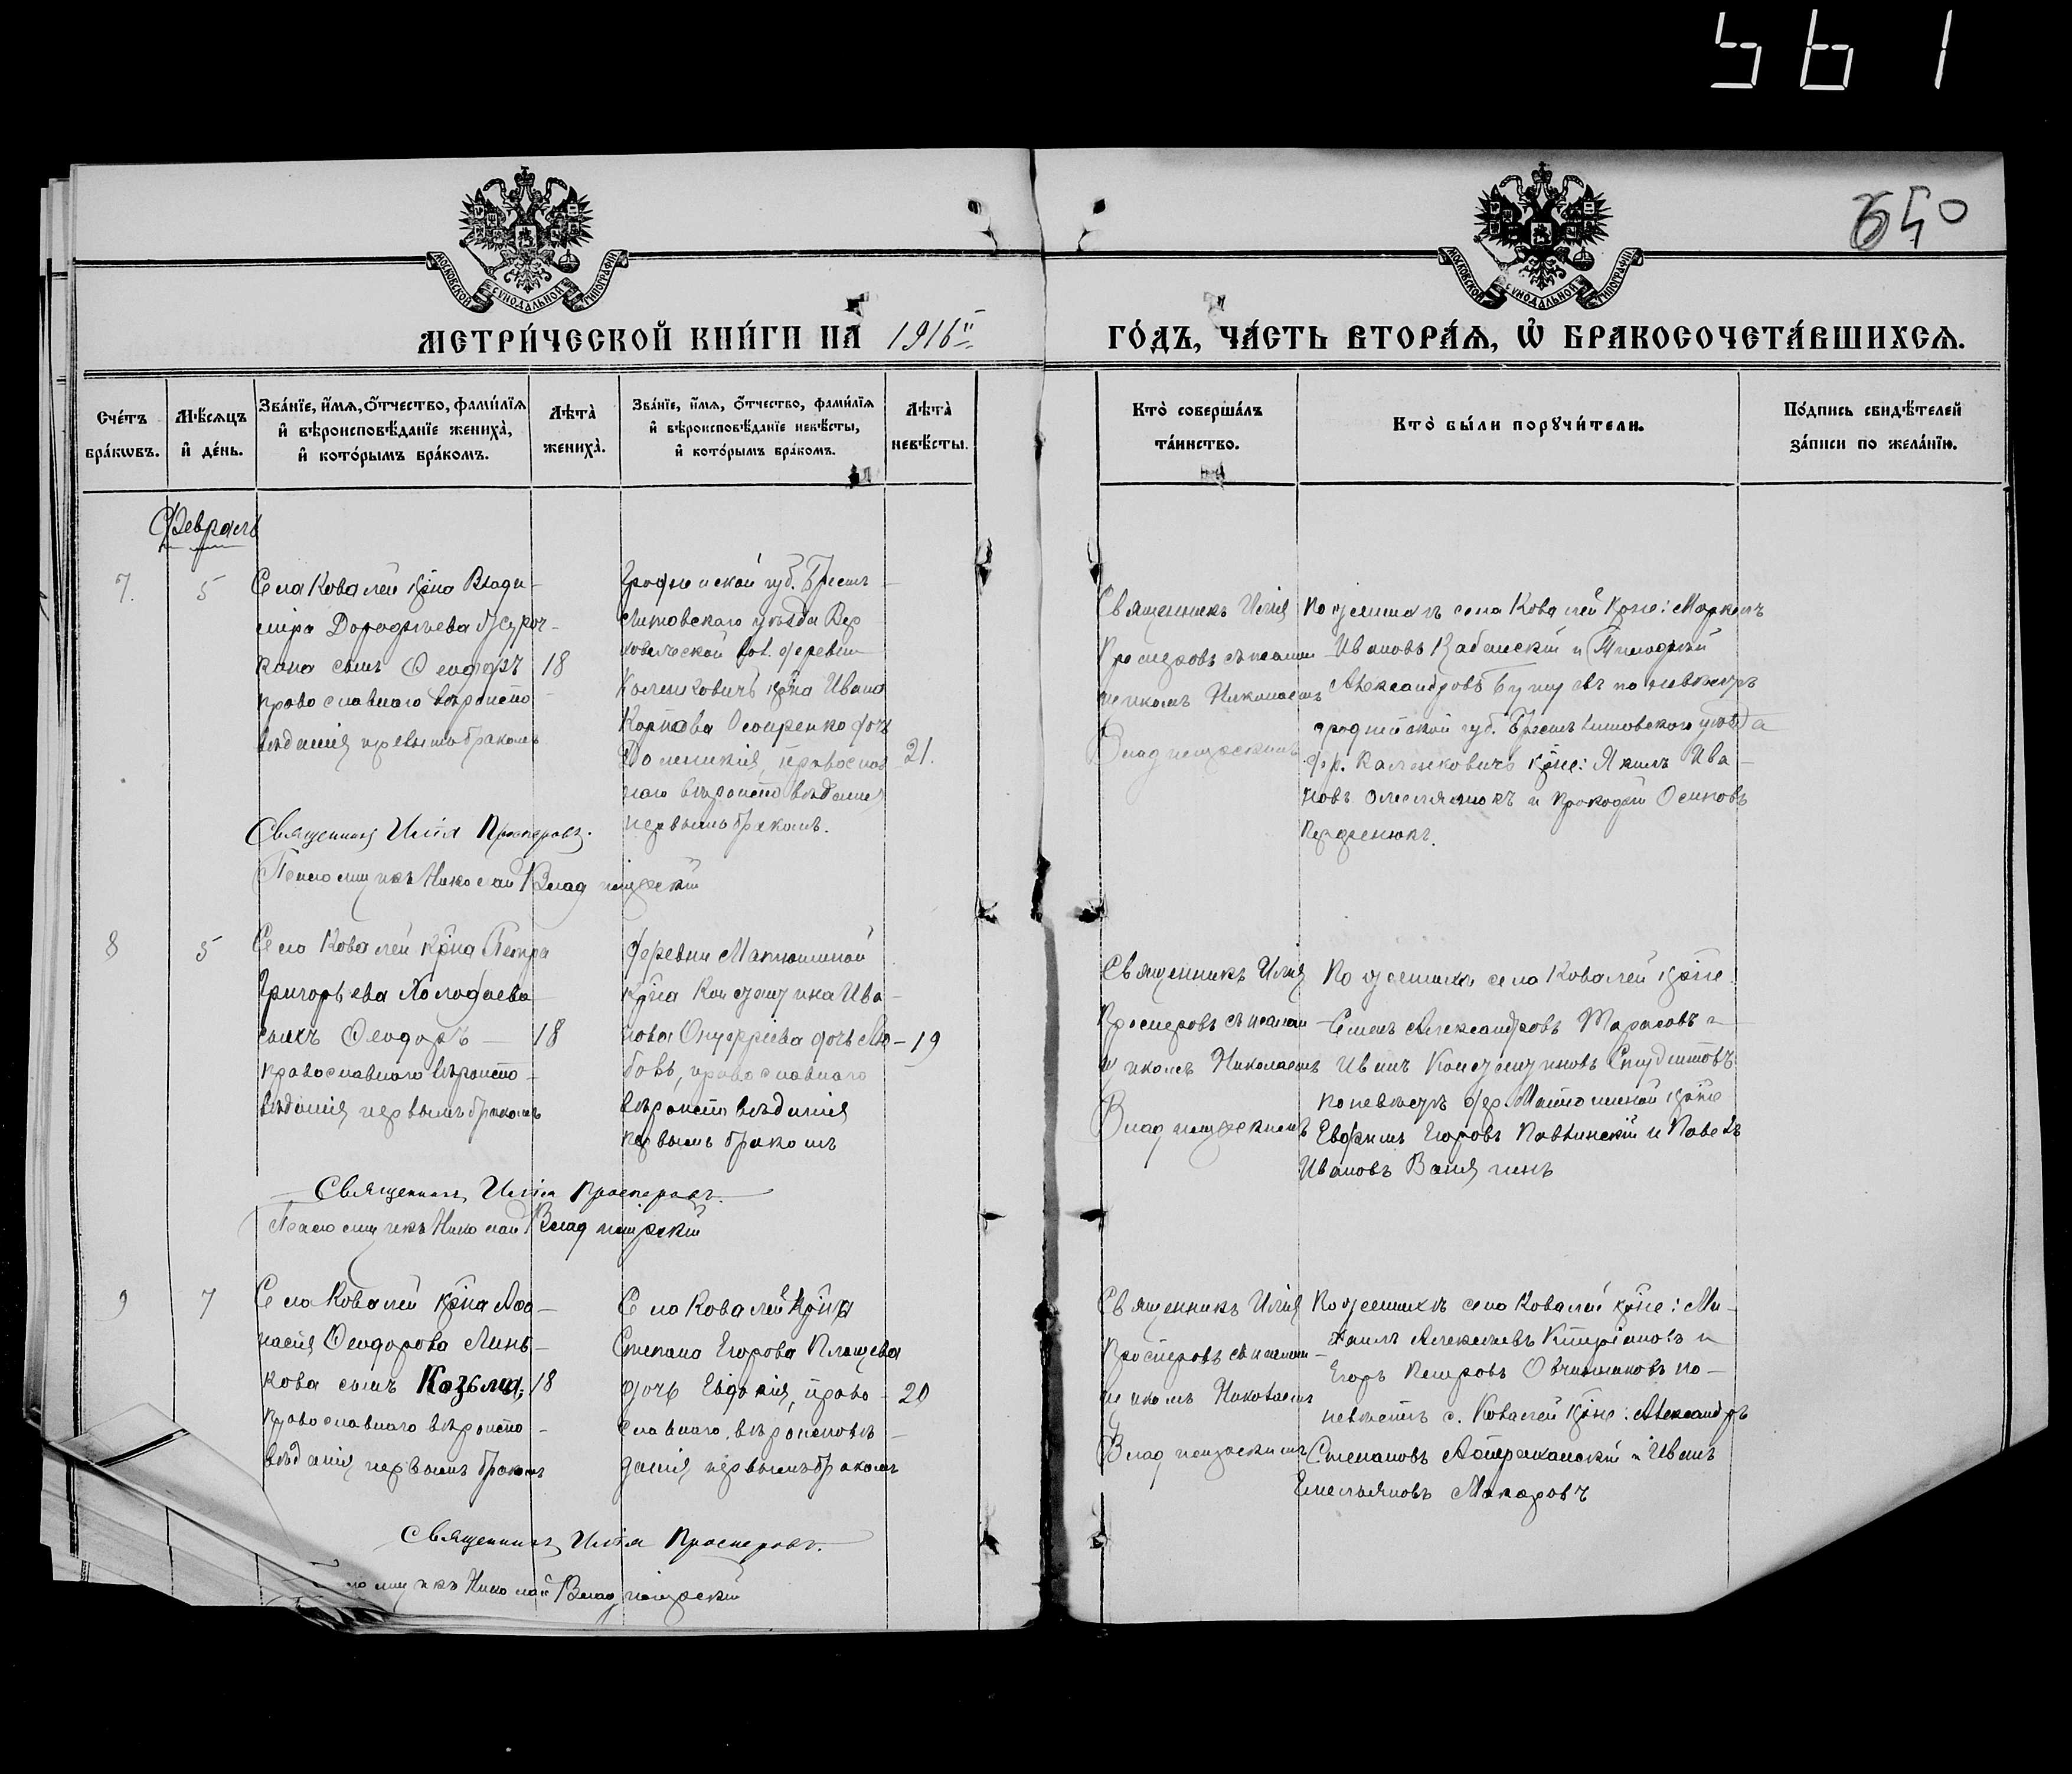 561
650
МОСКОВСКОЙ СѴНОДАЛЬНОЙ ТИПОГРАФІИ
МОСКОВСКОЙ СѴНОДАЛЬНОЙ ТИПОГРАФІИ
МЕТРИ́ЧЕСКОЙ КНИ́ГИ НА 1916й
ГО́ДЪ, ЧА́СТЬ ВТОРА́Ѧ, Ѽ БРАКОСОЧЕТА́ВШИХСѦ.
Сче́тъ бра́кѡвъ.
Мѣ́сѧцъ и҆ де́нь.
Зва́нїе, и҆́мѧ, ѻ҆́тчество, фами́лїѧ
и҆ вѣроисповѣ́данїе жениха̀,
и҆ кото́рымъ бра́комъ.
Лѣта̀ жениха̀.
Зва́нїе, и҆́мѧ, ѻ҆́тчество, фами́лїѧ
и҆ вѣроисповѣ́данїе невѣ́сты,
и҆ кото́рымъ бра́комъ.
Лѣта̀ невѣ́сты.
Кто̀ соверша́лъ
та́инство.
Кто̀ бы́ли порꙋчи́тели.
По́дпись свидѣ́телей
за́писи по жела́нїю.
Февраль
7. 5
Села Ковалей кр-на Влади-
міра Дорофѣева
сынъ Ѳеодоръ 18
православнаго вѣроиспо-
вѣданія первымъ бракомъ
Гродненской губ. Брестъ-
Литовскаго уѣзда Вер-
ховической вол. деревни
кр-на Ивана
дочь
православ 21.
наго вѣроисповѣданія
первымъ бракомъ.
Священникъ Илія
Просперовъ съ псалом-
щикомъ Николаемъ
Владимірскимъ
По женихѣ села Ковалей кр-не: Маркелъ
Ивановъ и Тимофей
Александровъ по невѣстѣ
Гродненской губ. Брестъ Литовскаго уѣзда
дер. кр-не: Якимъ Ива-
новъ и Прокофій Осиповъ
Священникъ Илія Просперовъ.
Псаломщикъ Николай Владимірскій
8 5
Села Ковалей кр-на Петра
Григорьева Холодаева
сынъ Ѳеодоръ — 18
православнаго вѣроиспо-
вѣданія первымъ бракомъ
деревни Матюшиной
кр-на Ива-
нова Онуфріева дочь Лю- 19
бовь, православнаго
вѣроисповѣданія
первымъ бракомъ
Священникъ Илія
Просперовъ съ псалом-
щикомъ Николаемъ
Владимірскимъ
По женихѣ села Ковалей кр-не
Семенъ Александровъ Тарасовъ и
Иванъ
по невѣстѣ дер. Матюшиной кр-не
Егоровъ и Павелъ
Ивановъ
Священникъ Илія Просперовъ.
Псаломщикъ Николай Владимірскій
9 7
Села Ковалей кр-на Аѳа-
насія Ѳеодорова Линь-
кова сынъ Козьма, 18
православнаго вѣроиспо-
вѣданія первымъ бракомъ
Села Ковалей кр-на
Степана Егорова
дочь Евдокія, право- 20
славнаго вѣроисповѣ-
данія первымъ бракомъ
Священникъ Илія
Просперовъ съ псалом-
щикомъ Николаемъ
Владимірскимъ
По женихѣ села Ковалей кр-не: Ми-
хаилъ Алексѣевъ Кипріановъ и
Егоръ Петровъ Овчинниковъ по-
невѣстѣ с. Ковалей кр-не: Александръ
Степановъ Астраханскій и Иванъ
Емельяновъ Макаровъ
Священникъ Илія Просперовъ.
Николай Владимірскій